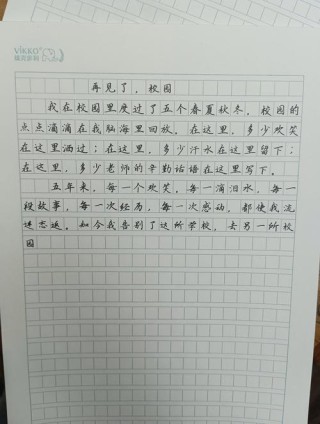 VIKKO
再见了，校园
我在校园里度过了五个春夏秋冬，校园的
点点滴滴在我脑海里回放，在这里，多少欢笑
在这里洒过；在这里，多少汗水在这里留下；
在这里，多少老师的辛勤话语在这里写下。
五年来，每一个欢笑，每一滴泪水，每一
段故事，每一次经历，每一次感动，都使我流
连忘返。如今我告别了这所学校，去另一所校
园